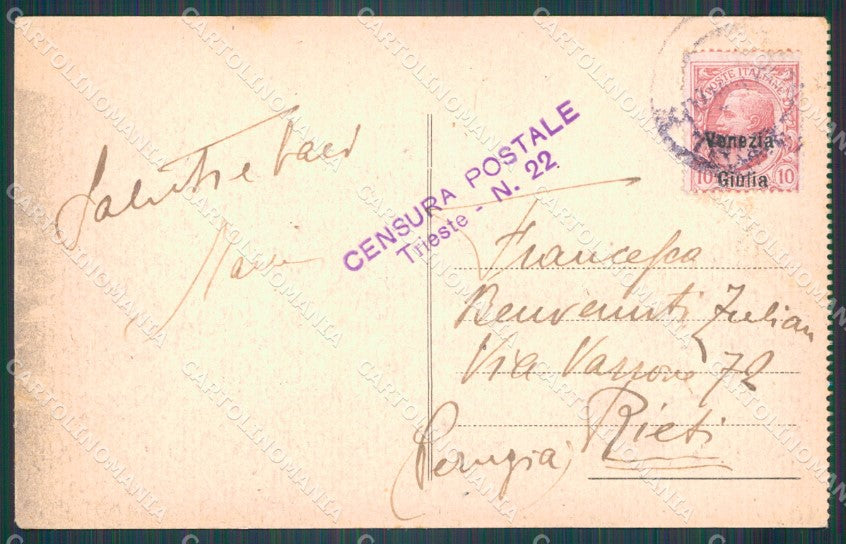 Saluti e baci
CENSURA POSTALE
Trieste - N. 22
POSTE ITALIANE
Venezia
Giulia
10 10
Francesca
Benvenuti
Via 72
Rieti
(Perugia)
CARTOLINOMANIA